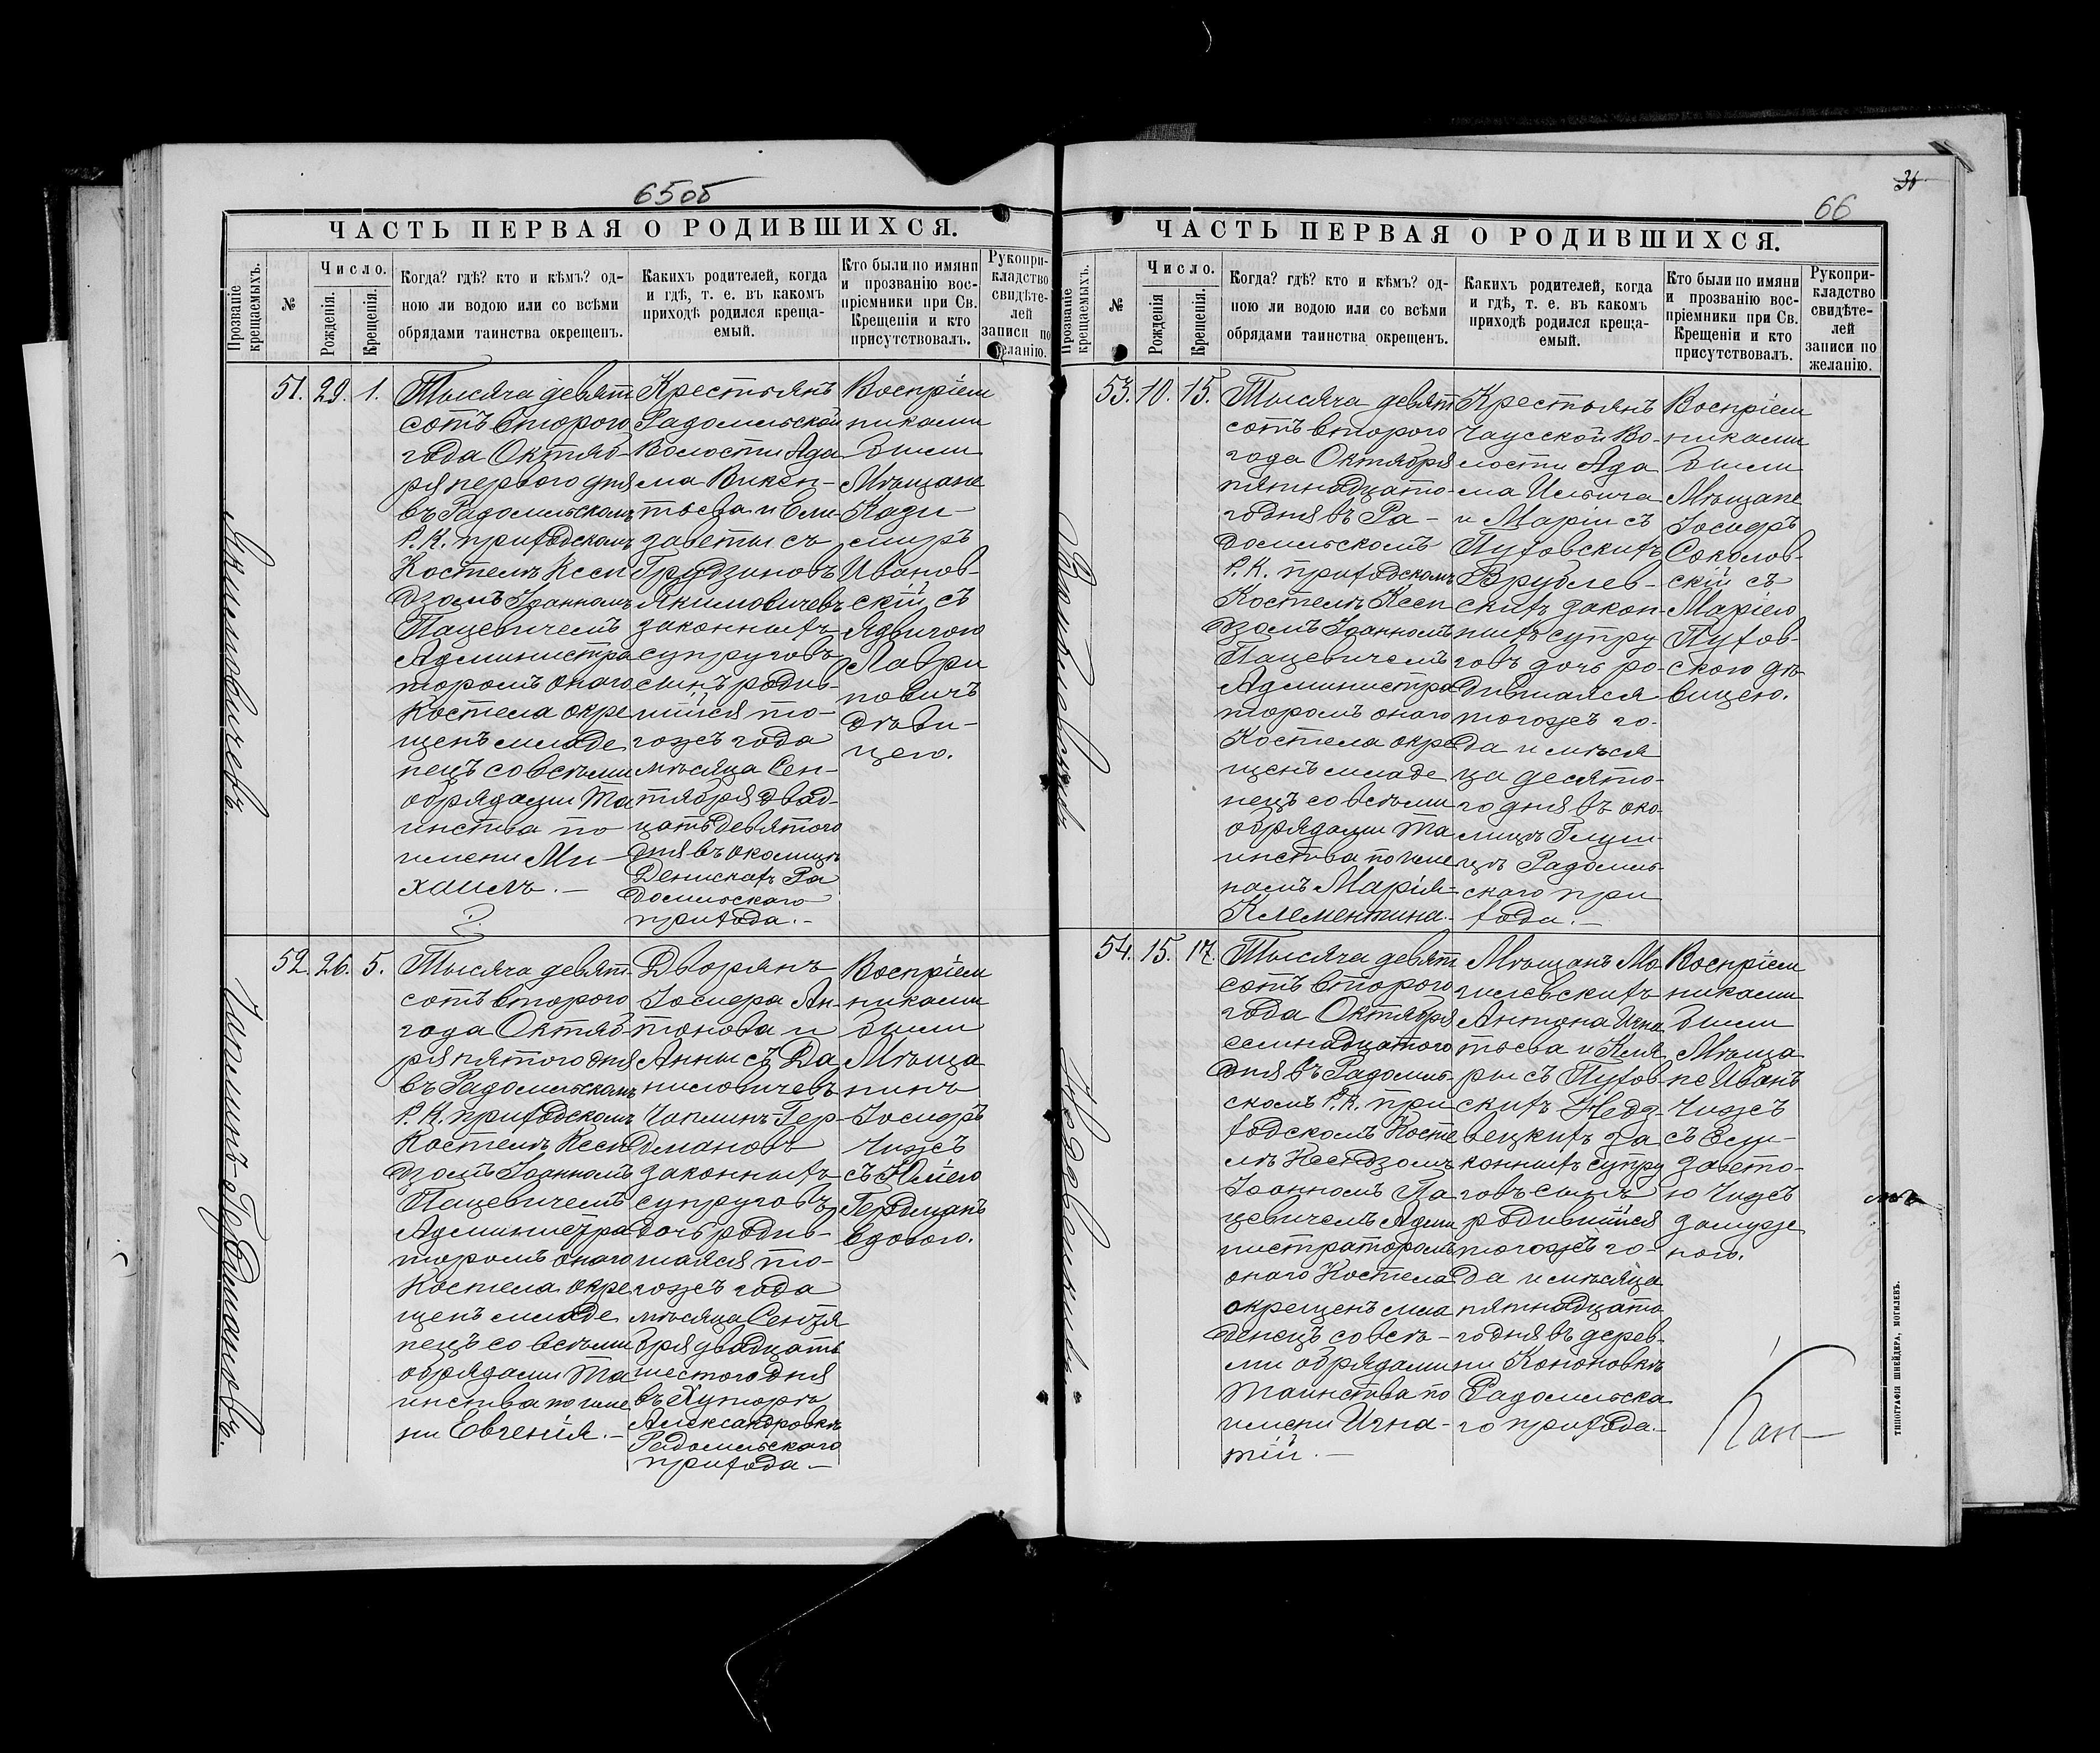 65об
ЧАСТЬ ПЕРВАЯ О РОДИВШИХСЯ.
Прозваніе крещаемыхъ.
№
Число.
Рожденія.
Крещенія.
Когда? гдѣ? кто и кѣмъ? од-
ною ли водою или со всѣми
обрядами таинства окрещенъ.
Какихъ родителей, когда
и гдѣ, т. е. въ какомъ
приходѣ родился креща-
емый.
Кто были по имяни
и прозванію вос-
пріемники при Св.
Крещеніи и кто
присутствовалъ.
Рукопри-
кладство
свидѣте-
лей
записи по
желанію.
Якимовичевъ.
51. 29. 1.
Тысяча девят
сотъ второго
года Октяб-
ря первого дня
въ Радомльскомъ
Р. К. приходскомъ
Костелѣ Ксен
дзомъ Іоанномъ
Пацевичемъ
Администра
торомъ онаго
Костела окре
щенъ младе
нецъ со всѣми
обрядами Та
инства по
имени Ми-
хаилъ. —
Крестьянъ
Радомльской
Волости Ада
ма Викен-
тьева и Ели-
заветы съ
Грудзиновъ
Якимовичевъ
законныхъ
супруговъ
сынъ родив-
шійся то-
гожъ года
мѣсяца Сен-
тября двад-
цать девятого
дня въ околицѣ
Денискахъ Ра
домльского
прихода. —
Воспріем
никами
были
Мѣщане
Кази-
миръ
Иванов-
скій съ
Ядвигою
Лаври
новичъ
дѣви-
цею.
Чаплинъ-Гердмановъ.
52. 26. 5.
Тысяча девят
сотъ второго
года Октяб-
ря пятого дня
въ Радомльскомъ
Р. К. приходскомъ
Костелѣ Ксен
дзомъ Іоанномъ
Пацевичемъ
Администра
торомъ онаго
Костела окре
щенъ младе
нецъ со всѣми
обрядами Та
инства по име
ни Евгенія. —
Дворянъ
Іосифа Ан-
тонова и
Анны съ Да
ниловичевъ
Чаплинъ-Гер-
дмановъ
законныхъ
супруговъ
дочь родив-
шаяся то-
гожъ года
мѣсяца Сентя
бря двадцать
шестого дня
въ Хуторѣ
Александровкѣ
Радомльского
прихода —
Воспріем
никами
были
Мѣща
нинъ
Іосифъ
Чижъ
съ Юліею
Гердманъ
вдовою.
34
66
ЧАСТЬ ПЕРВАЯ О РОДИВШИХСЯ.
Прозваніе крещаемыхъ.
№
Число.
Рожденія
Крещенія.
Когда? гдѣ? кто и кѣмъ? од-
ною ли водою или со всѣми
обрядами таинства окрещенъ.
Какихъ родителей, когда
и гдѣ, т. е. въ какомъ
приходѣ родился креща-
емый.
Кто были по имяни
и прозванію вос-
пріемники при Св.
Крещеніи и кто
присутствовалъ.
Рукопри-
кладство
свидѣте-
лей
записи по
желанію.
53. 10. 15.
Тысяча девят
сотъ второго
года Октября
пятнадцато-
го дня въ Ра-
домльскомъ
Р. К. приходскомъ
Костелѣ Ксен
дзомъ Іоанномъ
Пацевичемъ
Администра
торомъ онаго
Костела окре
щенъ младе
нецъ со всѣми
обрядами Та
инства по име
намъ Марія-
Клементина.
Крестьянъ
Чаусской Во-
лости Ада
ма Ильича
и Маріи съ
Пуховскихъ
Врублев-
скихъ закон-
ныхъ супру
говъ дочь ро-
дившаяся
тогожъ го-
да и мѣся
ца десято-
го дня въ око
лицѣ Глуш
цѣ Радомль-
скаго при
хода. —
Воспріем
никами
были
Мѣщане
Іосифъ
Соколов-
скій съ
Маріею
Пухов-
скою дѣ-
вицею.
54. 15. 17.
Тысяча девят
сотъ второго
года Октября
семнадцатого
дня въ Радомль-
скомъ Р. К. при
ходскомъ Косте
лѣ Ксендзомъ
Іоанномъ Па
цевичемъ Адми
нистраторомъ
онаго Костела
окрещенъ мла
денецъ со всѣ-
ми обрядами
Таинства по
имени Игна-
тій. —
Мѣщанъ Мо
гилевскихъ
Антона Игна
тьева и Кля
ры съ Пухов-
скихъ Недз-
вецкихъ за
конныхъ супру
говъ сынъ
родившійся
тогожъ го-
да и мѣсяца
пятнадцато
го дня въ дерев-
ни Кононовкѣ
Радомльска
го прихода. —
Воспріем
никами
были
Мѣща
не Иванъ
Чижъ
съ Ели-
завето-
ю Чижъ
замуж
ною.
ТИПОГРАФІЯ ШНЕЙДЕРА, МОГИЛЕВЪ.